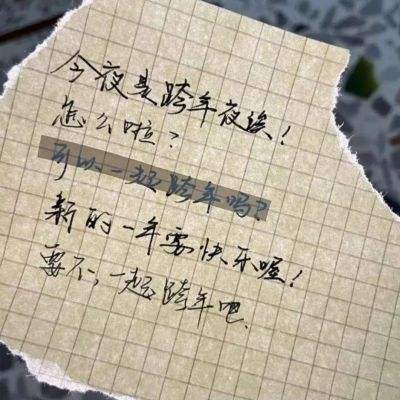 今夜是跨年夜诶！
怎么啦？
可以一起跨年吗？
新的一年要快乐喔！
要不，一起跨年吧.